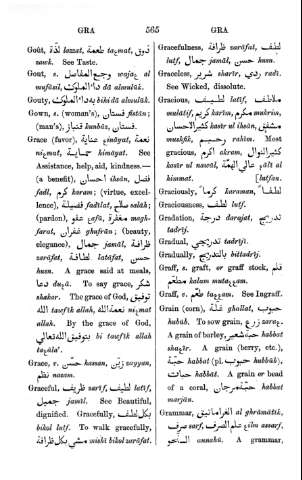 GRA 565 GRA
Goût, s. لذة lazzat, طعمة taȝmat, ذوق
zawk. See Taste.
Gout, s. وجع المفاصل wajaȝ al
mufāsil, داء الملوك dā almulūk.
Gouty, بداء الملوك bi hi dā almulūk.
Gown, s. (woman's), فستان fistān;
(man's), قنباز kunbāz, فستان.
Grace (favor), عناية ȝināyat, نعمة
niȝmat, حماية himāyat. See
Assistance, help, aid, kindness—
(a benefit), احسان ihsān, فضل
fadl, كرم karam; (virtue, excel-
lence), فضيلة fadīlat, صلاح salāh;
(pardon), عفو ȝafū, مغفرة magh-
farat, غفران ghafrān; (beauty,
elegance), جمال jamāl, ظرافة
zarāfat, لطافة latāfat, حسن
husn. A grace said at meals,
دعا duȝā. To say grace, شكر
shakar. The grace of God, توفيق
الله taufīk allah, نعمة الله niȝmat
allah. By the grace of God,
بتوفيق الله تعالى bi taufīk allah
taȝāla'.
Grace, v. حسّن hassan, زيّن zayyan,
نظم nazam.
Graceful, ظريف zarīf, لطيف latīf,
جميل jamīl. See Beautiful,
dignified. Gracefully, بكل لطف
bikol lutf. To walk gracefully,
مشي بكل ظرافة mishī bikol zarāfat.
Gracefulness, ظرافة zarāfat, لطف
lutf, جمال jamāl, حسن husn.
Graceless, شرير sharīr, ردي radī.
See Wicked, dissolute.
Gracious, لطيف latīf, ملاطف
mulātif, كريم karīm, مكرم mukrim,
كثير الاحسان kasīr ul ihsān, مشفق
mushfik, رحيم rahīm. Most
gracious, اكرم akram, كثير النوال
kasīr ul nawāl, عالي الهمّة ȝālī al
himmat. [latfan.
Graciously, كرماً karaman, لطفاً
Graciousness, لطف lutf.
Gradation, درجة darajat, تدريج
tadrīj.
Gradual, تدريجي tadrījī.
Gradually, بالتدريج bittadrīj.
Graff, s. graft, or graff stock, قلم
مطعم kalam mutaȝȝam.
Graff, v. طعّم taȝȝam. See Ingraff.
Grain (corn), غلة ghallat, حبوب
hubūb. To sow grain, زرع zaraȝ.
A grain of barley, حبة شعير habbat
shaȝīr. A grain (berry, etc.),
حبّة habbat (pl. حبوب hubūb),
حبات habbāt. A grain or bead
of a coral, حبّة مرجان habbat
marjān.
Grammar, الغراماتيق al ghrāmātīk,
صرف sarf, علم الصرف ȝilm assarf,
النحو annahū. A grammar,